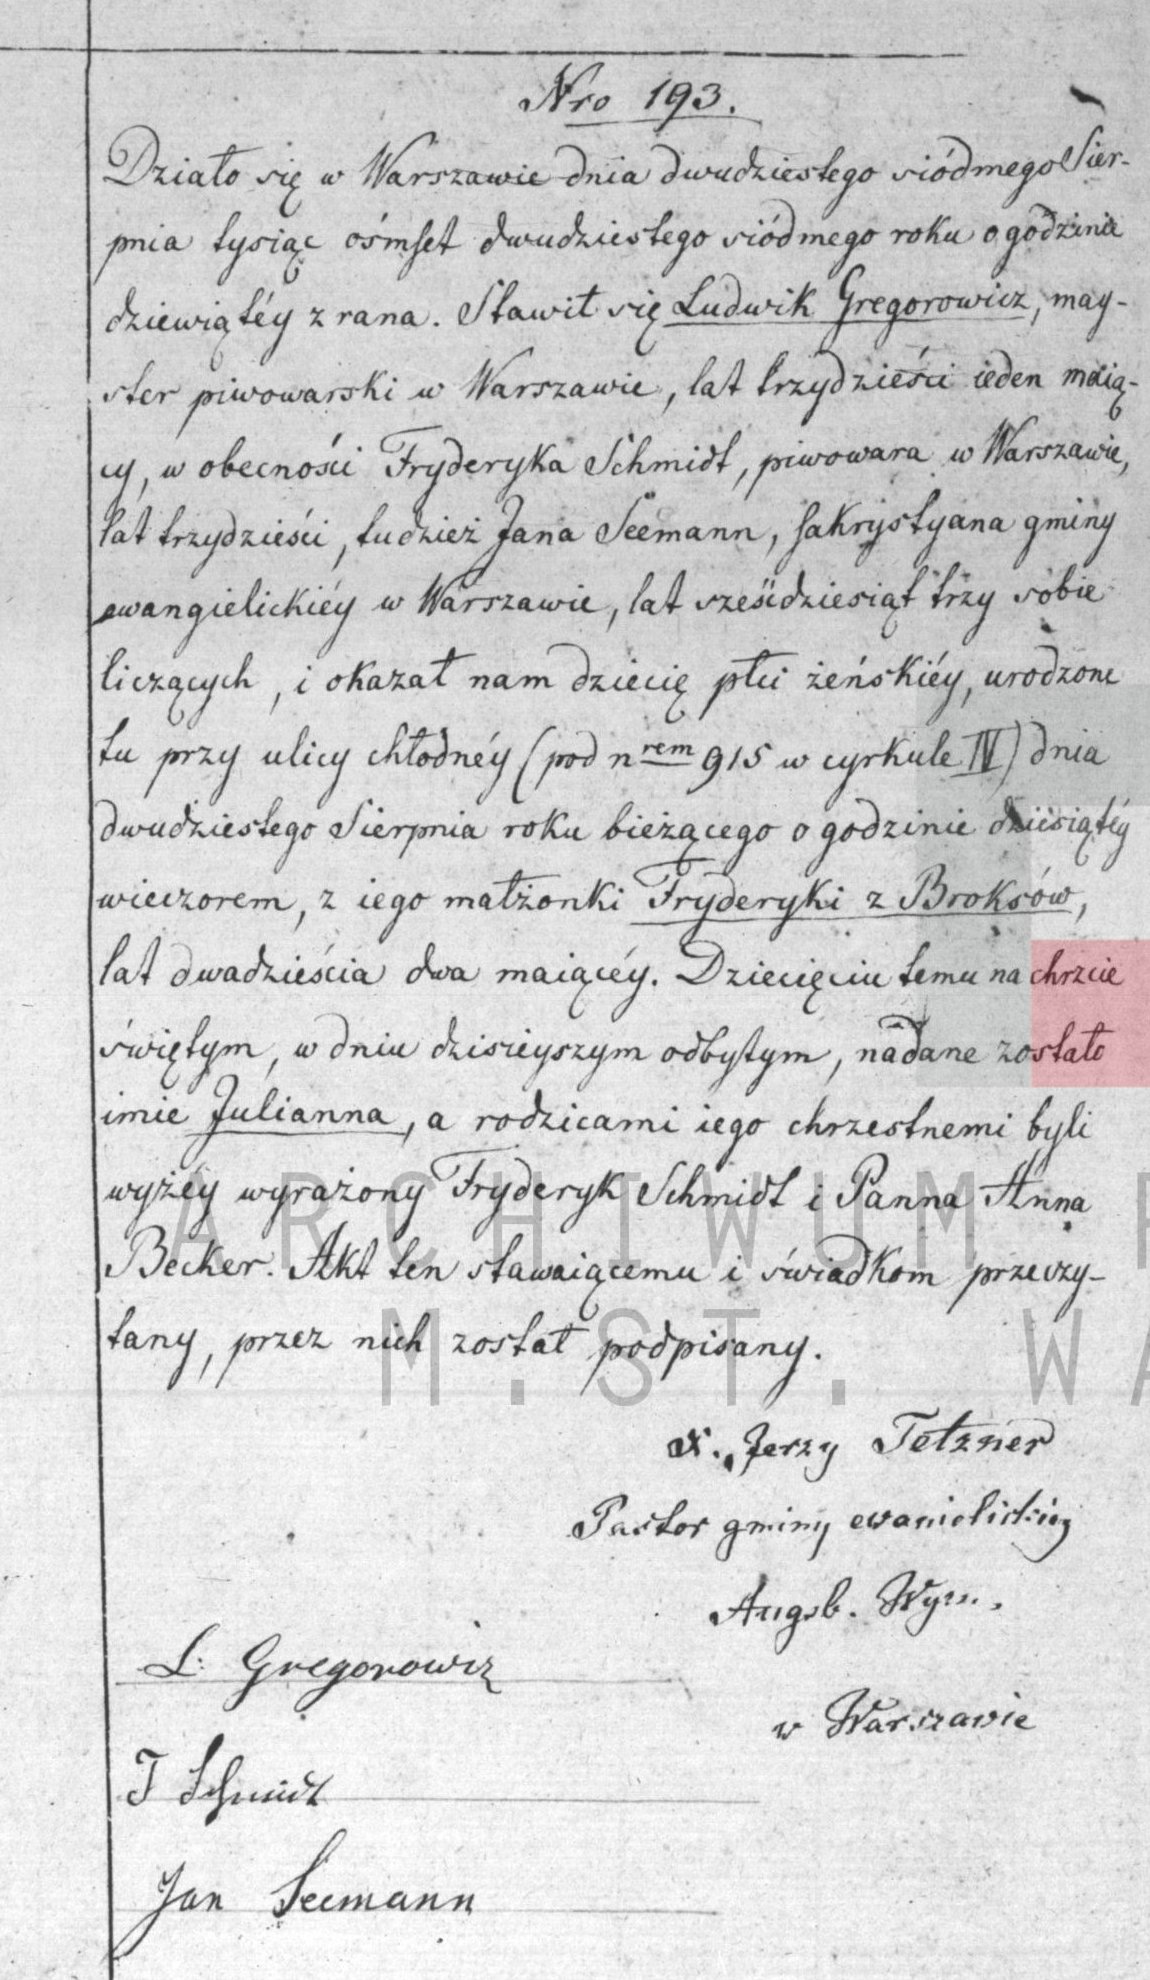 Nro 193.
Działo się w Warszawie dnia dwudziestego siódmego Sier-
pnia tysiąc ośmset dwudziestego siódmego roku o godzinie
dziewiątéy z rana. Stawił się Ludwik Gregorowicz, may-
ster piwowarski w Warszawie, lat trzydzieści ieden maią-
cy, w obecności Fryderyka Schmidt, piwowara w Warszawie,
lat trzydzieści, tudzież Jana Seemann, sakrystyana gminy
ewangielickiéy w Warszawie, lat sześćdziesiąt trzy sobie
liczących, i okazał nam dziecię płci żeńskiéy, urodzone
tu przy ulicy chłodnéy (pod nrem 915 w cyrkule IV) dnia
dwudziestego Sierpnia roku bieżącego o godzinie dziesiątéy
wieczorem, z iego małżonki Fryderyki z Broksów,
lat dwadzieścia dwa maiącéy. Dziecięciu temu na chrzcie
świętym, w dniu dzisieyszym odbytym, nadane zostało
imie Julianna, a rodzicami iego chrzestnemi byli
wyżéy wyrażony Fryderyk Schmidt i Panna Anna
Becker. Akt ten stawaiącemu i świadkom przeczy-
tany, przez nich został podpisany.
ARCHIWUM P
M. ST. WA
X. Jerzy Tetzner
Pastor gminy ewanielickiey
Augsb. Wyzn.
w Warszawie
L: Gregorowiz
F Schmidt
Jan Seemann